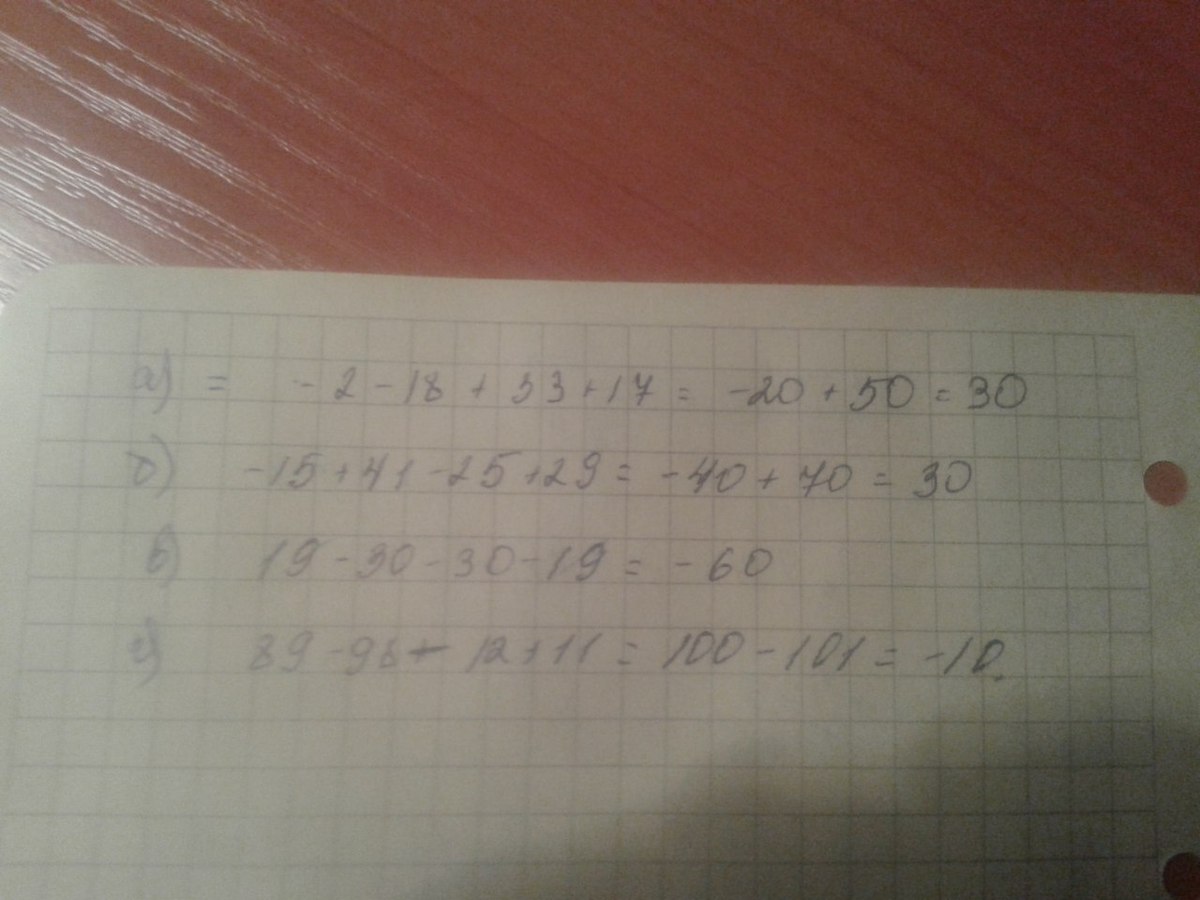 а) = -2-18+33+17 = -20+50=30
б) -15+41-25+29=-40+70=30
в) 19-30-30-19=-60
г) 89-98-12+11=100-101=-10.